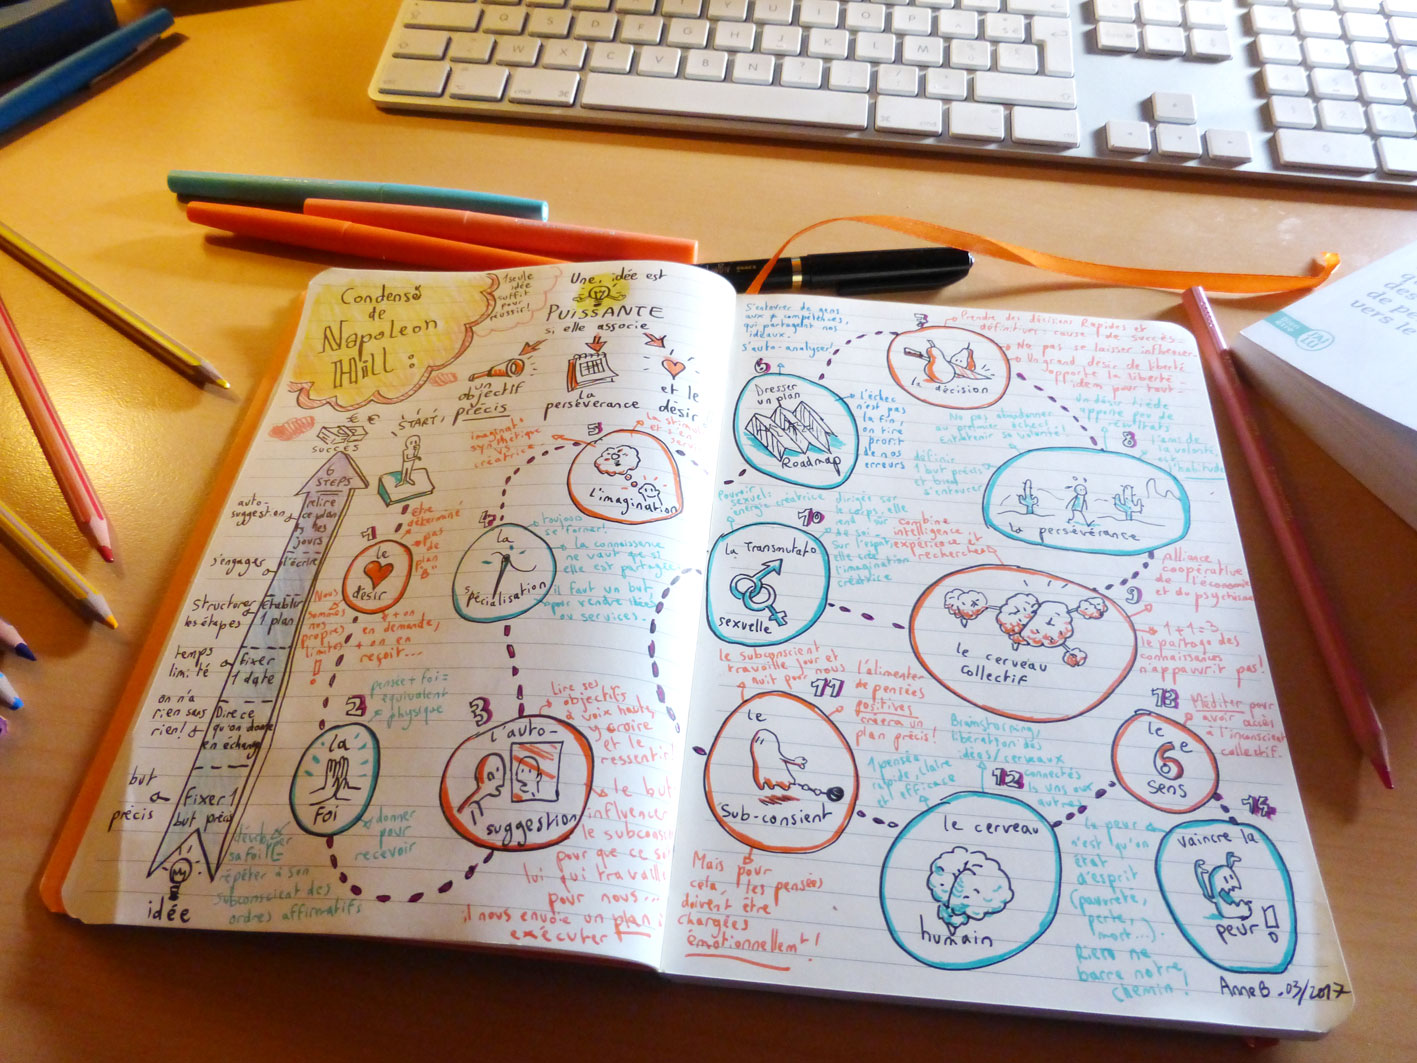 Condensé
de
Napoleon
Hill:
1 seule
idée
suffit
pour
réussir!
Une idée est
PUISSANTE
si elle associe
un
objectif
précis
la
persévérance
et le
désir!
€ €
succès
START!
6
STEPS
relire
ce plan
ts les
jours
l'écrire
établir
1 plan
fixer
1 date
Dire ce
qu'on donne
en échange
fixer 1
but précis
auto-
suggestion
s'engager
structurer
les étapes
temps
limité
on n'a
rien sans
rien!
but
précis
idée
1
le
désir
être
déterminé
pas
de
plan
"B"
Nous
sommes
nos
propres
limites
!
+ on
demande,
+ on en
reçoit...
2
la
Foi
pensée + foi =
équivalent
physique
donner
pour
recevoir
sa foi =
répéter à son
subconscient des
ordres affirmatifs
3
l'auto-
suggestion
Lire ses
objectifs
à voix haute,
y croire
et le
ressentir!
le but
influencer
le subconscient
pour que ce soit
lui qui travaille
pour nous...
il nous envoie un plan à
exécuter
4
la
spécialisation
toujours
se former!
la connaissance
ne vaut que si
elle est partagée
il faut un but
pour rendre
ou services.
5
l'imagination
imaginat°
synthétique
vs
créatrice
la stimuler
et s'en
servir
6
Dresser
un plan
Roadmap
S'entourer de gens
aux compétences,
qui partagent nos
idéaux.
S'auto-analyser!
l'échec
n'est pas
la fin
on tire
profit
de nos
erreurs
7
la décision
Prendre des décisions rapides et
définitives = cause 1 de succès.
Ne pas se laisser influencer
Un grand désir de liberté
apporte la liberté
idem pour tout
Un désir tiède
apporte peu de
résultats
8
la persévérance
Ne pas abandonner
au premier échec!
Entretenir sa volonté!
définir
1 but précis
et bien
s'entourer
l'ame de
la volonté,
est
l'habitude
9
le cerveau
collectif
combine
intelligence,
expérience et
recherches
Alliance
coopérative
de l'économie
et du psychisme
1+1=3
le partage des
connaissances
n'appauvrit pas!
10
la Transmutat°
sexuelle
Pouvoir
sexuel =
énergie créatrice
dirigée sur
le corps, elle
rend sûr
de soi
sur l'esprit,
elle crée
l'imagination
créatrice
11
le
Sub-conscient
le subconscient
travaille jour et
nuit pour nous
l'alimenter
de pensées
positives
créera un
plan précis!
Mais pour
cela, les pensées
doivent être
chargées
émotionnellemt!
12
le cerveau
humain
Brainstorming,
libération des
idées/cerveaux
connectés
les uns aux
autres
1 pensée
rapide, claire
et efficace
13
le
6e
sens
Méditer pour
avoir accès
à l'inconscient
collectif.
14
vaincre la
peur!
la peur
n'est qu'un
état
d'esprit
(pauvreté,
perte,
mort...).
Rien ne
barre notre
chemin!
AnneB.03/2017